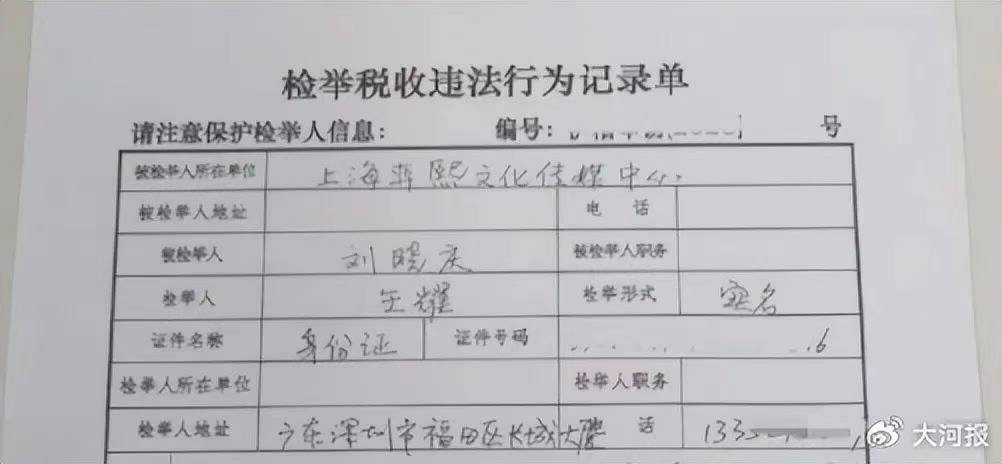 检举税收违法行为记录单
请注意保护检举人信息: 编号: 号
被检举人所在单位 上海 熙文化传媒中心
被检举人地址 电 话
被检举人 刘晓庆 被检举人职务
检举人 王耀 检举形式 实名
证件名称 身份证 证件号码 6
检举人所在单位 检举人职务
检举人地址 广东深圳市福田区长城大 话 133
大河报